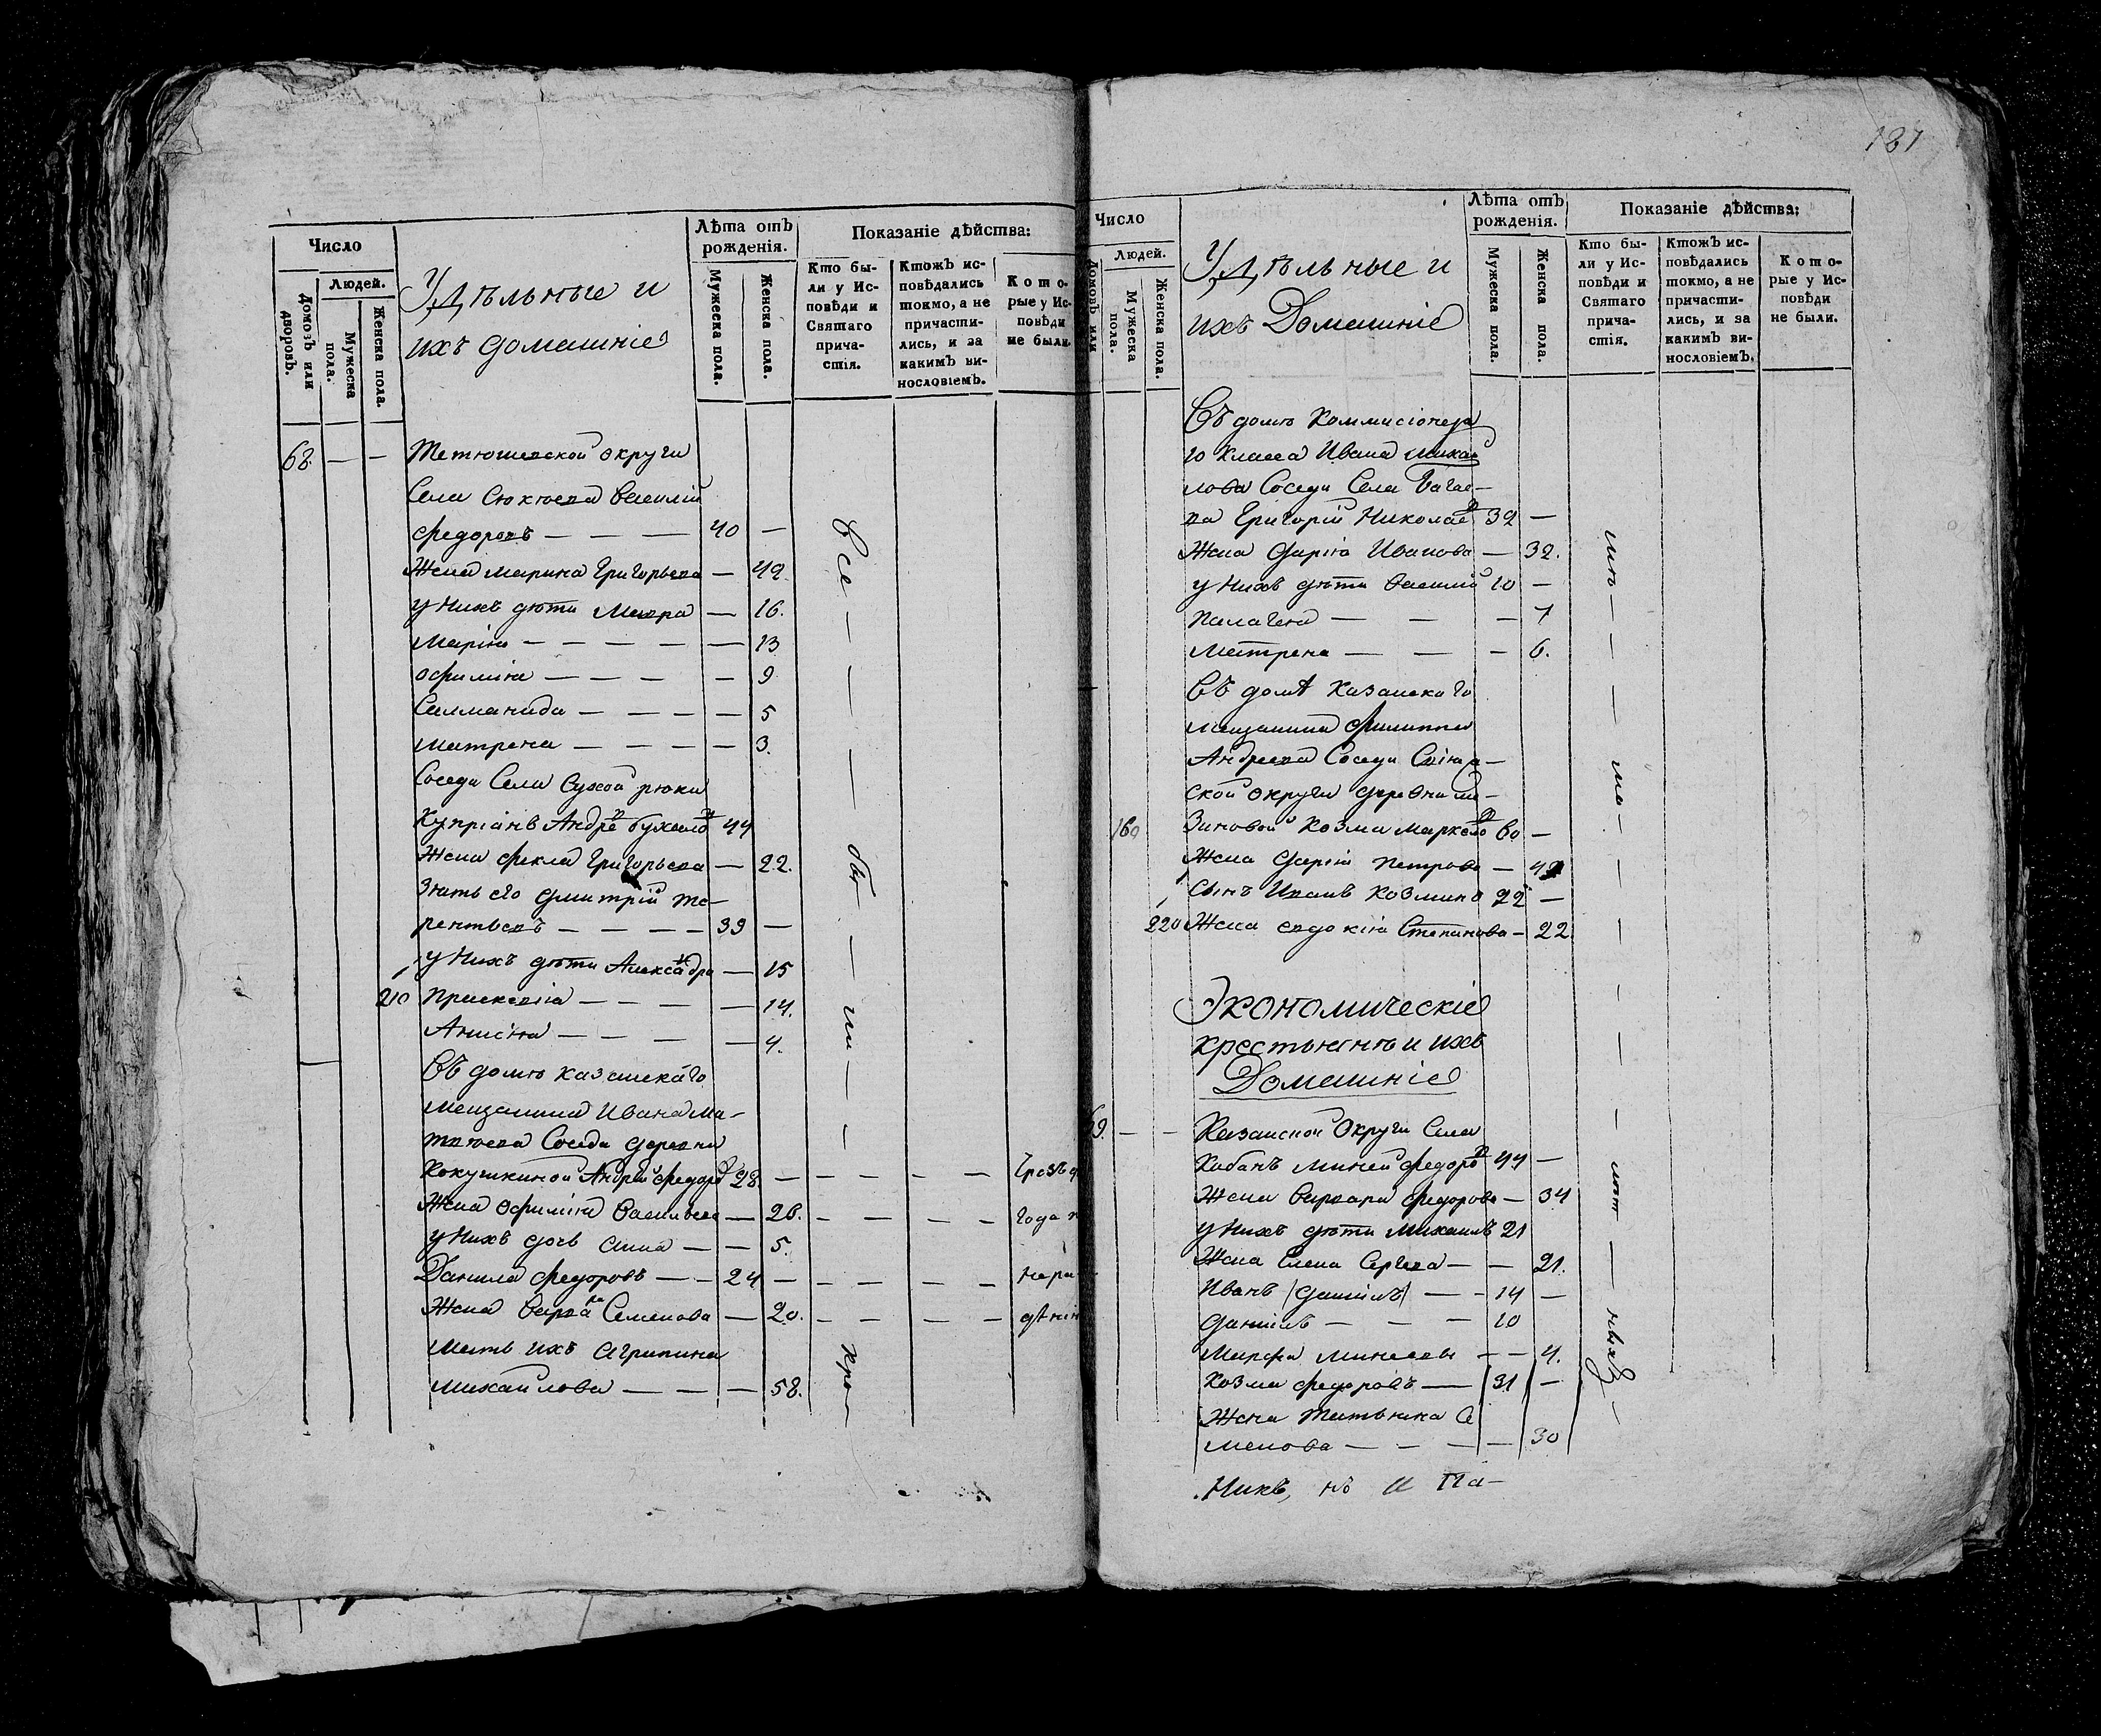 Число
Людей.
Домовъ или дворовъ.
Мужеска пола.
Женска пола.
Удѣльные и
ихъ домашніе
Лѣта отъ рожденія.
Мужеска пола.
Женска пола.
Показаніе дѣйства:
Кто были у Исповѣди и Святаго причастія.
Ктожъ исповѣдались токмо, а не причастились, и за какимъ винословіемъ.
Которые у Исповѣди не были.
68. — — Тетюшевской округи
Села Сюкѣева Василій
Федоровъ — — — 40 —
Жена Марина Григорьева — 42.
у нихъ дѣти Мавра — 16.
Марія — — — — — 13
Офимія — — — — 9
Саламанида — — — — 5
Матрена — — — — 3.
Соседи Села Сухой рѣки
Купріанъ Андре 44
Жена Фекла Григорьева — 22.
Зять его Дмитрій Те-
рентьевъ — — — — 39 —
у нихъ дѣти Александра — 15
210 Прасковіа — — — — 14.
Анисія — — — — 4.
Въ домѣ казанскаго
мещанина Ивана Ма-
твѣева Соседи деревни
Кокушкиной Андрей Федоро 28. — — — — —
Жена Офимія Васильева — 26. — — — — года
у нихъ дочь Анна — — 5.
Данила Федоровъ — — 24 — — — — — нера
Жена Варвара Семенова — 20. — — — — дѣнін
Мать ихъ Агрипина
Михайлова — — — 58.
Все — — — — — бы — — ли — — — кро —
187
Число
Людей.
Домовъ или
Мужеска пола.
Женска пола.
Удѣльные и
ихъ Домашніе
Лѣта отъ рожденія.
Мужеска пола.
Женска пола.
Показаніе дѣйства:
Кто были у Исповѣди и Святаго причастія.
Ктожъ исповѣдались токмо, а не причастились, и за какимъ винословіемъ.
Которые у Исповѣди не были.
Въ домѣ Коммисіонера
10 класса Ивана Михай
лова Соседи Села Багае-
ва Григорій Николае 39 —
Жена Дарія Иванова — 32.
у нихъ дѣти Василій 10 —
Палагея — — — 7
Матрена — — — 6.
Въ домѣ Казанскаго
мещанина Филиппа
Андреева Соседи Свіяж-
ской округи деревни
160 Козма Маркело 60 —
Жена Дарія Петрова —
Сынъ Иванъ Козминъ 22 —
220 Жена Евдокія Степанова — 22.
Экономическіе
крестьянѣ и ихъ
Домашніе
69. — — Казанской Округи Села
Кабанъ Миней Федоро 44 —
Жена Варвара Федорова — 34
у нихъ дѣти Михаилъ 21
Жена Елена Сергева — — 21.
Иванъ (Даніилъ) — — 14 —
Даніилъ — — — 10
Марфа Минеева — — 4.
Козма Федоровъ — 31 —
Жена Татьяна Се
менова — — — — 30